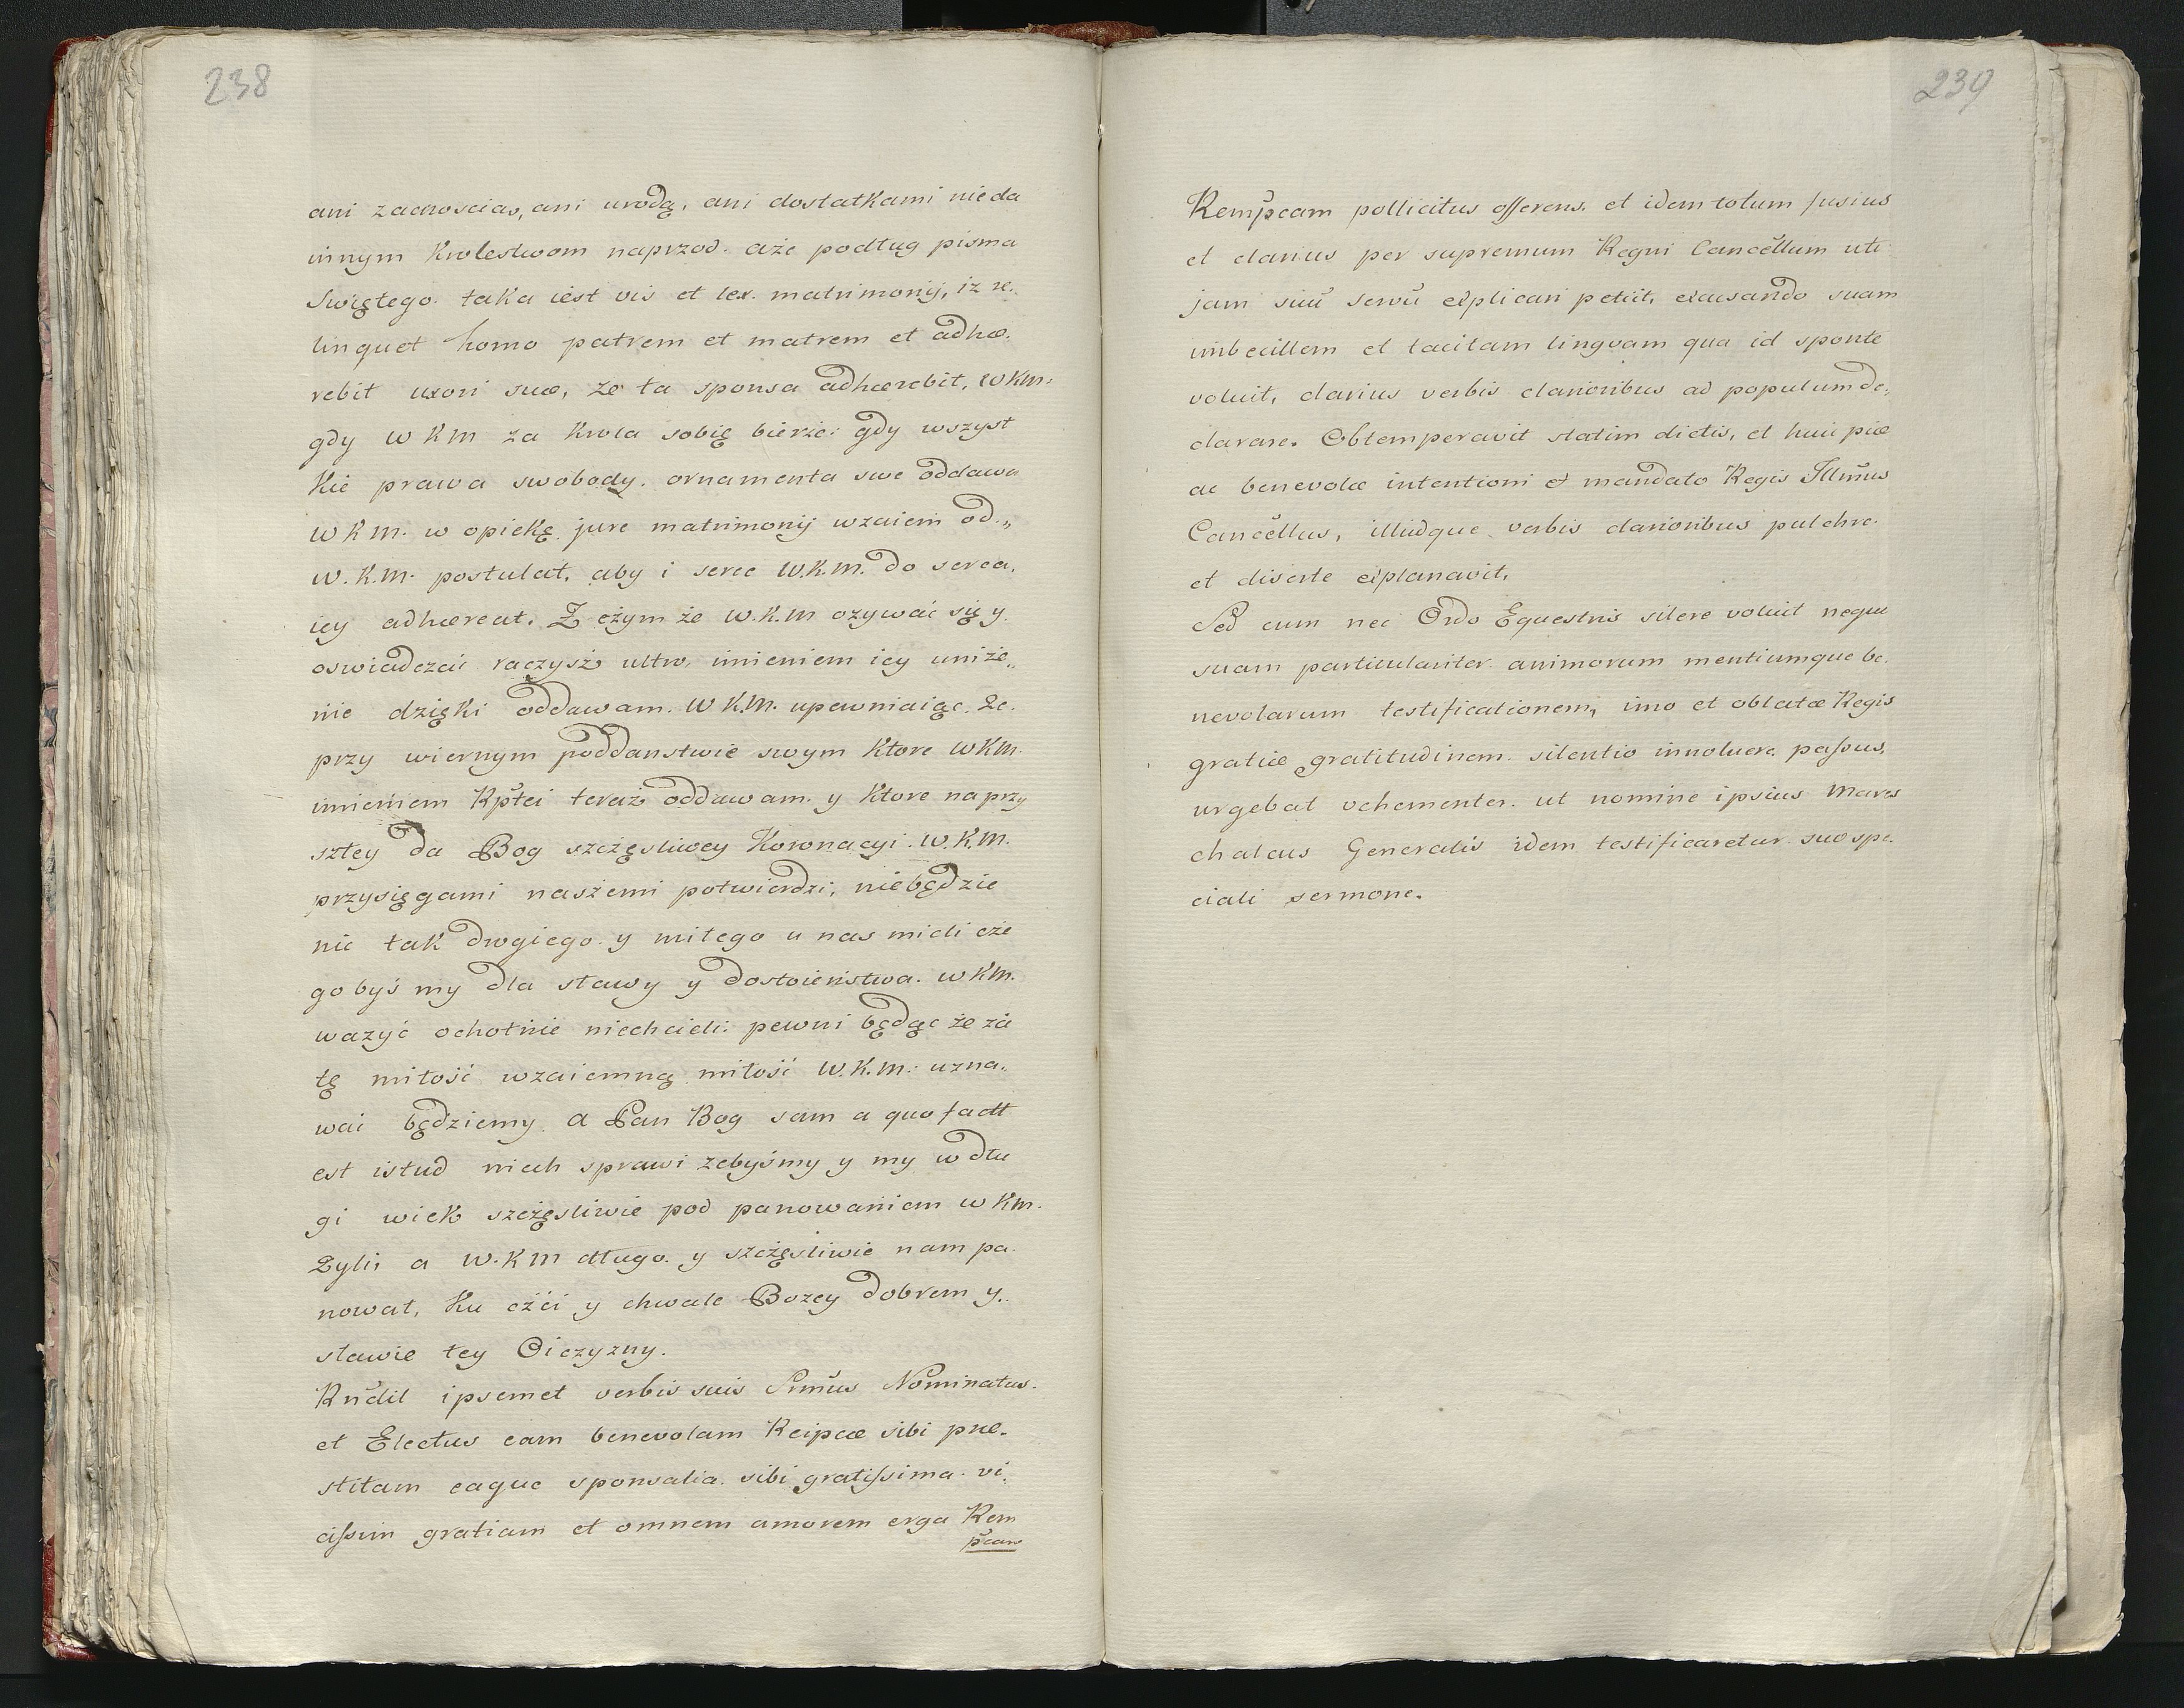 238
ani zacnoscias, ani urodą, ani dostatkami nieda
innym Krolestwom naprzod. aże podług pisma
Swiętego. taka iest vis et lex. matrimonij, iz re.
linquet homo patrem et matrem et adhæ.
rebit uxori suæ, że ta sponsa adhærebit, WKM:
gdy W K M za Krola sobię bierze: gdy wszyst
kie prawa swobody. ornamenta swe oddawa
W K M. w opiekę jure matrimonij wzaiem od.„
W. K. M. postulat, aby i serce W.K.M. do serca,
iey adhæreat. Z czym że W.K.M ozywać się y
oswiadczać raczysz ultro, imieniem iey uniże„
nie dzięki oddawam. W K.M. upewniaiąc, że.
przy wiernym poddanstwie swym ktore WKM.
imieniem Rptei teraz oddawam. y ktore naprzy
sztey da Bog szczęsliwey Koronacyi. W.K.M.
przysięgami naszemi potwierdzi, niebędzie
nic tak drogiego y miłego u nas mieli cze
go byś my dla sławy y dostoieństwa. WKM.
wazyć ochotnie niechcieli: pewni będąc że za
tę miłość wzaiemną miłość W.K.M: uzna.
wai będziemy. A Pan Bog sam a quo factt
est istud niech sprawi zebyśmy y my w dłu
gi wiek szczęsliwie pod panowaniem W KM.
Żyli, a W.K M długo. y szczęsliwie nam pa
nował, Ku czci y chwale Bozey dobrem y.
sławie tey Oiczyzny.
Rndit ipsemet verbis suis Smus Nominatus.
et Electus eam benevolam Reipcæ sibi præ.
stitam eaque sponsalia. sibi gratissima. vi.
cissim gratiam et omnem amorem erga Rem
pcam
239
Rempcam pollicitus offerens. et idem totum fusius
et clarius per supremum Regni Cancellum uti
jam suu servu explicari petiit, excusando suam
imbecillem et tacitam lingvam qua id sponte
voluit, clarius verbis clarioribus ad populum de„
clarare. Obtemperavit statim dictis, et huic piæ
ac benevolæ intentioni et mandato Regis Illmus
Cancellus, illudque verbis clarioribus pulchre.
et diserte explanavit.
Sed cum nec Ordo Equestris silere voluit neque
suam particulariter animorum mentiumque be.
nevolarum testificationem, imo et oblatæ Regis
gratiæ gratitudinem. silentio involuere passus,
urgebat vehementer. ut nomine ipsius Mares
chalcus Generalis idem testificaretur suo spe.
ciali sermone.